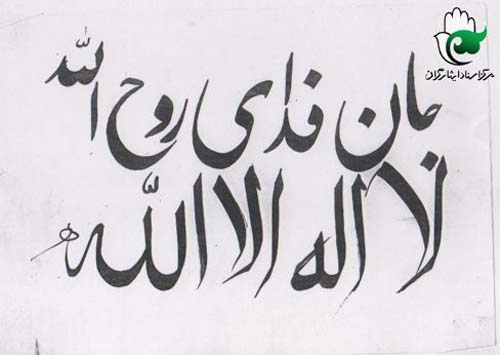 جان فدای روح الله
لا اله الا الله
مرکز اسناد ایثارگران